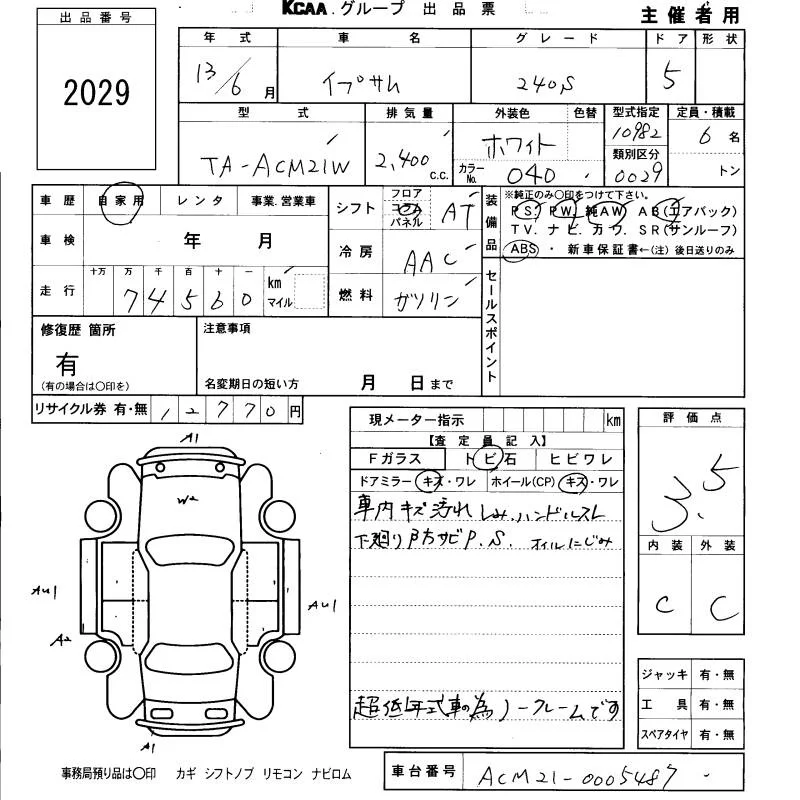 KCAA.グループ 出品票
主催者用
出品番号
2029
年式 車名 グレード ドア 形状
13/6月 イプサム 240S 5
型式 排気量 外装色 色替 型式指定 定員・積載
TA-ACM21W 2,400c.c. ホワイト 10982 6名
カラーNo. 040 類別区分 0029 トン
車歴 自家用 レンタ 事業.営業車
車検 年 月
走行 十万 万 千 百 十 一 km マイル
74560
シフト フロア コラム パネル AT
冷房 AAC
燃料 ガソリン
装備品
※純正のみ〇印をつけて下さい。
PS. PW. 純AW AB(エアバック)
TV. ナビ. カワ. SR(サンルーフ)
ABS ・ 新車保証書←(注)後日送りのみ
セールスポイント
修復歴 箇所
有
(有の場合は〇印を)
注意事項
名変期日の短い方 月 日まで
リサイクル券 有・無 12770円
現メーター指示 km
【査定員記入】
Fガラス トビ石 ヒビワレ
ドアミラー キズ・ワレ ホイール(CP) キズ・ワレ
車内キズ汚れ しみ.ハンドルスレ
下廻り防サビP.S. オイルにじみ
超低年式車の為ノークレームです
評価点
3.5
内装 外装
C C
ジャッキ 有・無
工具 有・無
スペアタイヤ 有・無
A1
W2
AU1
AU1
A2
A1
事務局預り品は〇印 カギ シフトノブ リモコン ナビロム
車台番号 ACM21-0005487